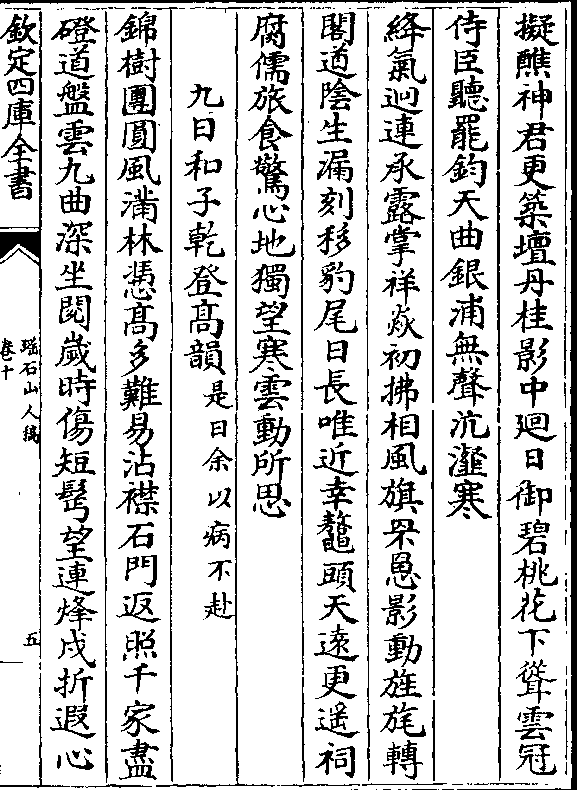 擬醮神君更築壇丹桂影中迴日御碧桃花下聳雲冠
侍臣聽罷鈞天曲銀浦無聲沆瀣寒
絳氣迥連承露掌祥焱初拂相風旗罘罳影動旌旄轉
閣道陰生漏刻移豹尾日長唯近幸鼇頭天遠更遥祠
腐儒旅食驚心地獨望寒雲動所思
九日和子乾登高韻是日余以病不赴
錦樹團圓風滿林憑高多難易沾襟石門返照千家盡
磴道盤雲九曲深坐閱嵗時傷短髩望連烽戍折遐心
欽定四庫全書
瑶石山人稿
卷十
五